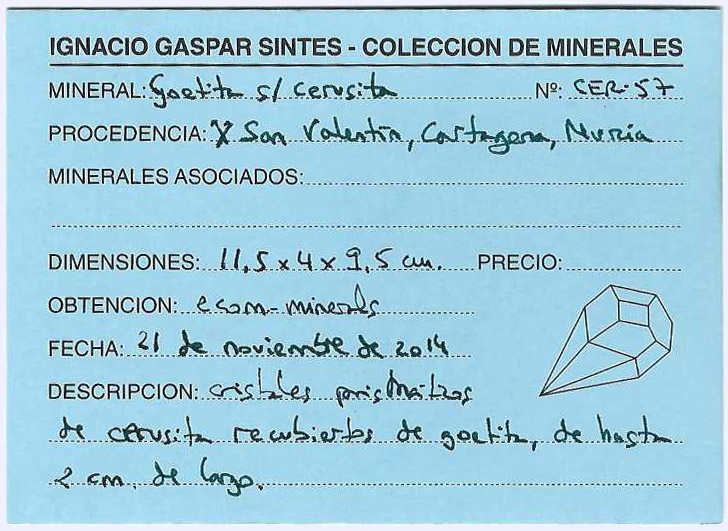 IGNACIO GASPAR SINTES - COLECCION DE MINERALES
MINERAL: Goetita s/ cerusita Nº: CER-57
PROCEDENCIA: X San Valentín, Cartagena, Murcia
MINERALES ASOCIADOS:
DIMENSIONES: 11,5 x 4 x 9,5 cm. PRECIO:
OBTENCION: ecom-minerals
FECHA: 21 de noviembre de 2014
DESCRIPCION: cristales prismáticos
de cerusita recubiertos de goetita, de hasta
2 cm. de largo.